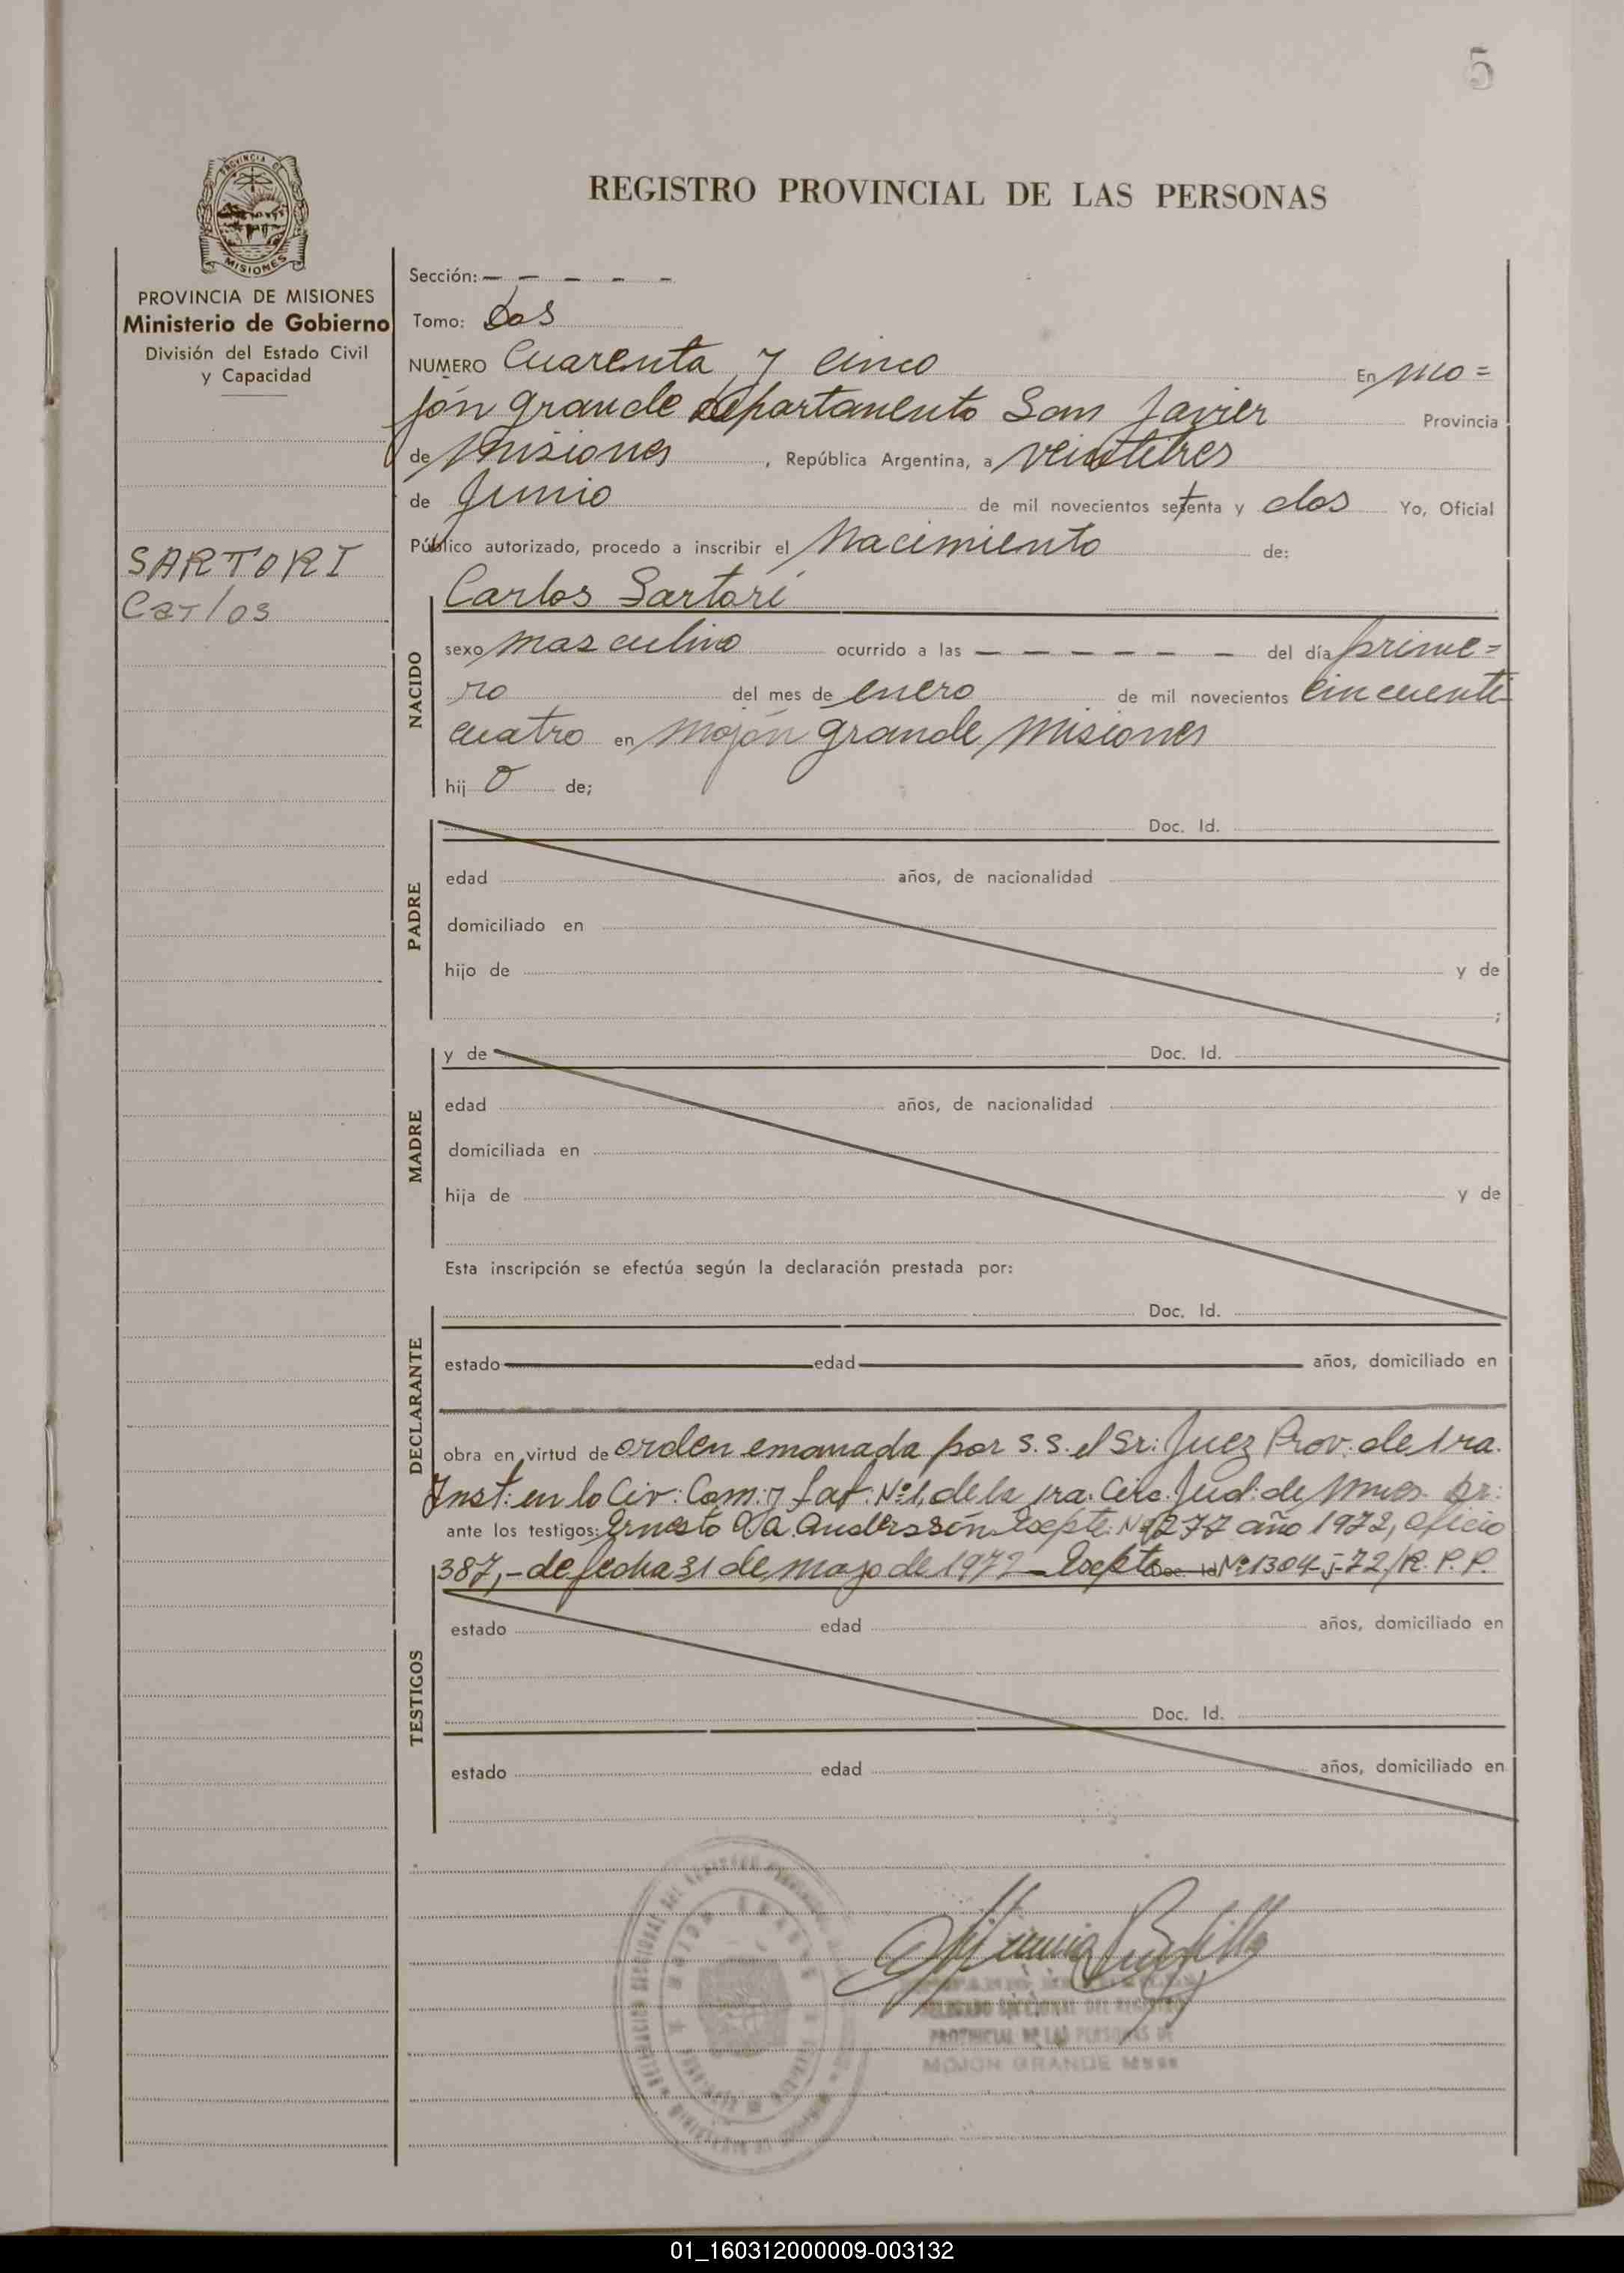 5
PROVINCIA DE
MISIONES
REGISTRO PROVINCIAL DE LAS PERSONAS
PROVINCIA DE MISIONES
Ministerio de Gobierno
División del Estado Civil
y Capacidad
SARTORI
Carlos
Sección: - - - - -
Tomo: Dos
NUMERO Cuarenta y cinco En Mo=
jón grande departamento San Javier Provincia
de Misiones, República Argentina, a veintitres
de Junio de mil novecientos setenta y dos Yo, Oficial
Público autorizado, procedo a inscribir el Nacimiento de:
NACIDO
Carlos Sartori
sexo masculino ocurrido a las - - - - - - del día prime=
ro del mes de enero de mil novecientos cincuenti
cuatro en Mojón grande Misiones
hij o de;
PADRE
Doc. Id.
edad años, de nacionalidad
domiciliado en
hijo de y de
;
MADRE
y de Doc. Id.
edad años, de nacionalidad
domiciliada en
hija de y de
Esta inscripción se efectúa según la declaración prestada por:
DECLARANTE
Doc. Id.
estado edad años, domiciliado en
obra en virtud de orden emanada por S.S. el Sr: Juez Prov. de 1ra.
Inst: en lo Civ: Com: y Lab: Nº1, de la 1ra: Circ. Jud: de Mnes. Dr:
ante los testigos: Ernesto Anderssón Nº 277 año 1972, oficio
387,- de fecha 31 de mayo de 1972 - Expte Doc. Id. Nº 1304-J-72/R.P.P.
TESTIGOS
estado edad años, domiciliado en
Doc. Id.
estado edad años, domiciliado en
PROVINCIAL DE LAS PERSONAS DE
MOJON GRANDE Mnes
01_160312000009-003132